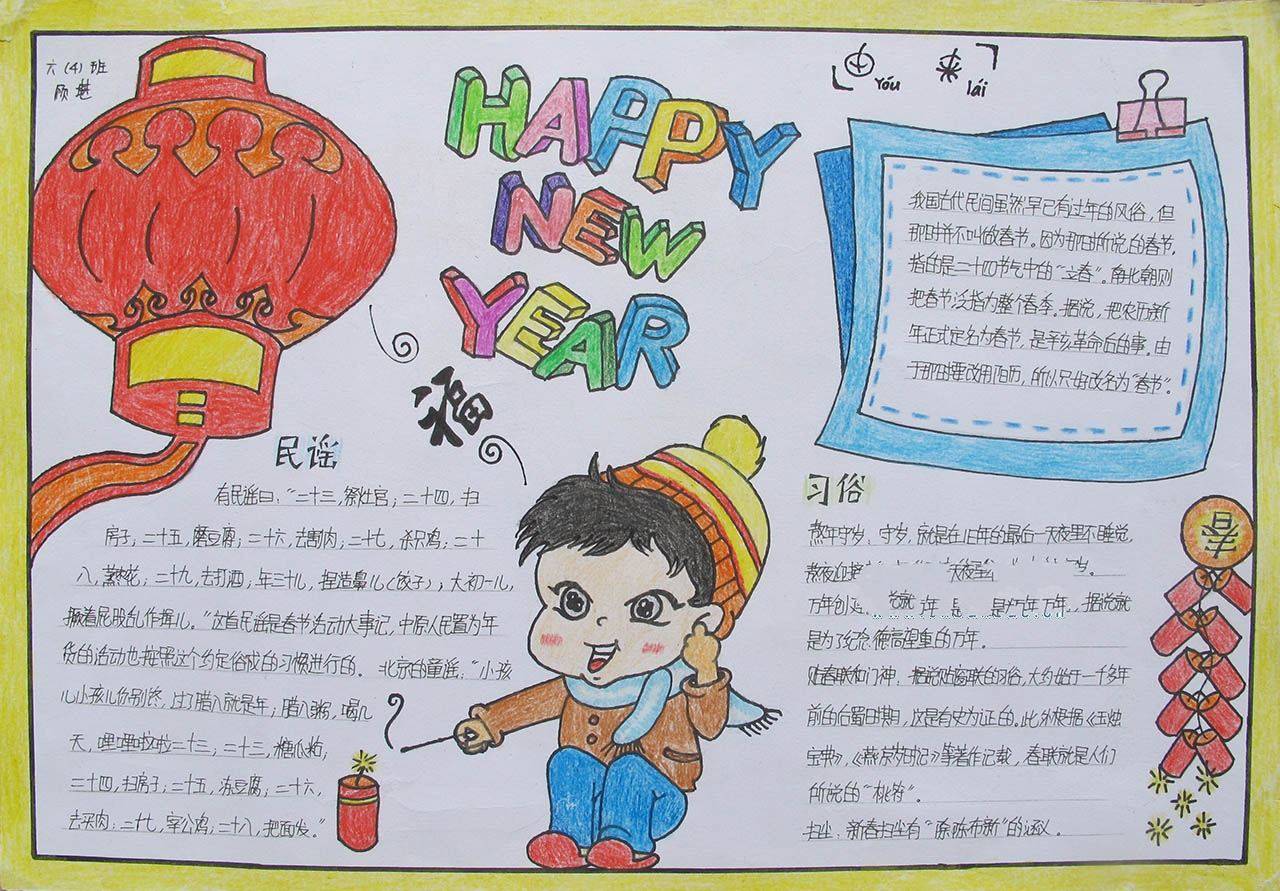 六(4)班
顾
HAPPY
NEW
YEAR
由来
yóu lái
我国古代民间虽然早已有过年的风俗，但
那时并不叫做春节。因为那时所说的春节，
指的是二十四节气中的“立春”。南北朝则
把春节泛指为整个春季。据说，把农历新
年正式定名为春节，是辛亥革命后的事。由
于那时要改用阳历，所以只好改名为“春节”。
福
民谣
有民谣曰：“二十三，祭灶官；二十四，扫
房子；二十五，磨豆腐；二十六，去割肉；二十七，杀只鸡；二十
八，蒸枣花；二十九，去打酒；年三十儿，捏造鼻儿(饺子)；大初一儿，
撅着屁股乱作揖儿。”这首民谣是春节活动大事记，中原人民置为年
货的活动也按照这个约定俗成的习惯进行的。北京的童谣：“小孩
儿小孩儿你别馋，过了腊八就是年；腊八粥，喝几
天，哩哩啦啦二十三；二十三，糖瓜粘；
二十四，扫房子；二十五，冻豆腐；二十六，
去买肉；二十七，宰公鸡；二十八，把面发。”
习俗
熬年守岁：守岁，就是在旧年的最后一天夜里不睡觉，
熬夜迎接
万年创 据说就
是为了纪念德高望重的万年
贴春联和门神：据说贴春联的习俗，大约始于一千多年
前的后蜀时期，这是有史为证的。此外根据《玉烛
宝典》，《燕京岁时记》等著作记载，春联就是人们
所说的“桃符”。
扫尘：新春扫尘有“除陈布新”的涵义。
春